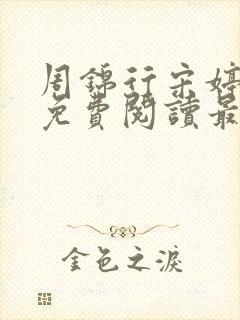 周錦行宋婷
免費閱讀最
金色之淚